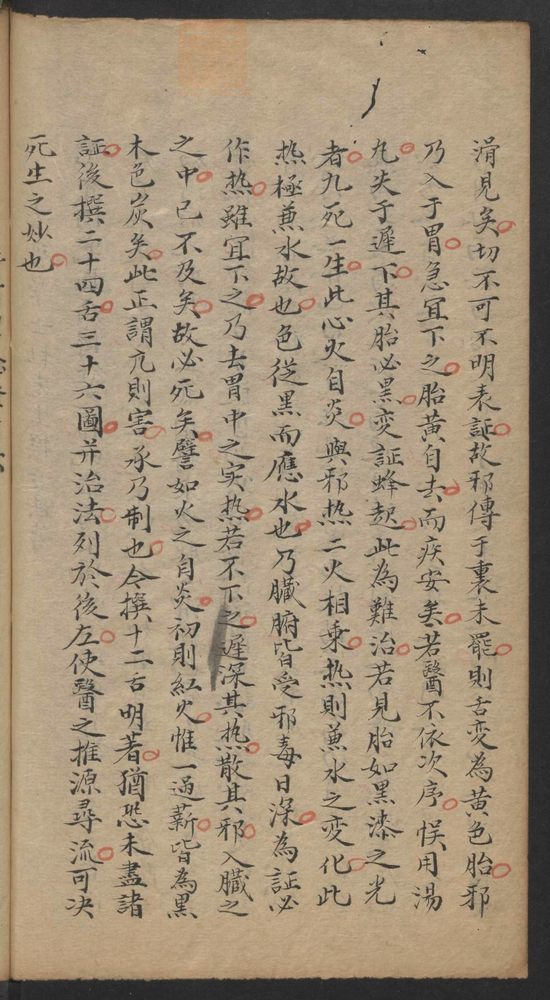 滑見矣切不可不明表証故邪傳于裏未罷則舌变為黄色胎邪
乃入于胃急冝下之胎黄自去而疾安矣若醫不依次序悮用湯
丸失于遲下其胎必黒变証蜂起此為難治若見胎如黒漆之光
者九死一生此心火自炎與邪热二火相乗热則兼水之变化此
热極兼水故也色從黒而應水也乃臓腑皆受邪毒日深為証必
作热雖冝下之乃去胃中之实热若不下之遲深其热散其邪入臓之
之中已不及矣故必死矣譬如火之自炎初則紅火惟一過薪皆為黒
木色炭矣此正謂亢則害承乃制也今撰十二舌明著猶恐未盡諸
証後撰二十四舌三十六圖并治法列於後左使醫之推源尋流可决
死生之妙也